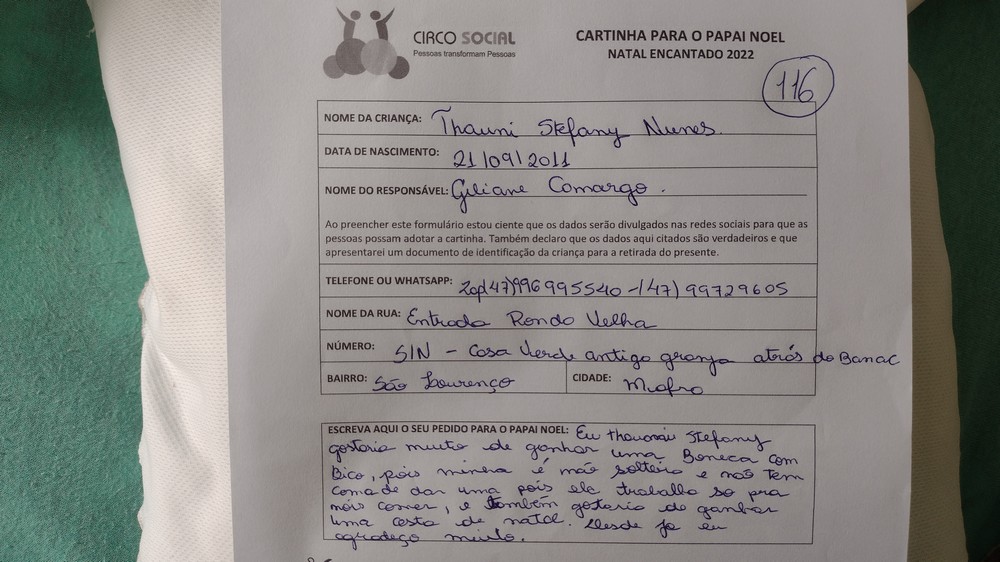 CIRCO SOCIAL
Pessoas transformam Pessoas
CARTINHA PARA O PAPAI NOEL
NATAL ENCANTADO 2022
116
NOME DA CRIANÇA: Thauni Stefany Nunes.
DATA DE NASCIMENTO: 21/09/2011
NOME DO RESPONSÁVEL: Giliane Comargo.
Ao preencher este formulário estou ciente que os dados serão divulgados nas redes sociais para que as
pessoas possam adotar a cartinha. Também declaro que os dados aqui citados são verdadeiros e que
apresentarei um documento de identificação da criança para a retirada do presente.
TELEFONE OU WHATSAPP: Zap(47)996995540-(47)99729605
NOME DA RUA: Entrada Rondo Velha
NÚMERO: S/N - Casa Verde antigo granja atrós do Banac
BAIRRO: São Lourenço CIDADE: Mafra
ESCREVA AQUI O SEU PEDIDO PARA O PAPAI NOEL: Eu Stefany
gostaria muito de ganhar uma Boneca com
Bico, pois minha é mão solteira e não Tem
coma de dar uma pois ela trabalha so pra
nóis comer, e também gostaria de ganhar
uma cesta de natal. Desde ja eu
agradeço muito.